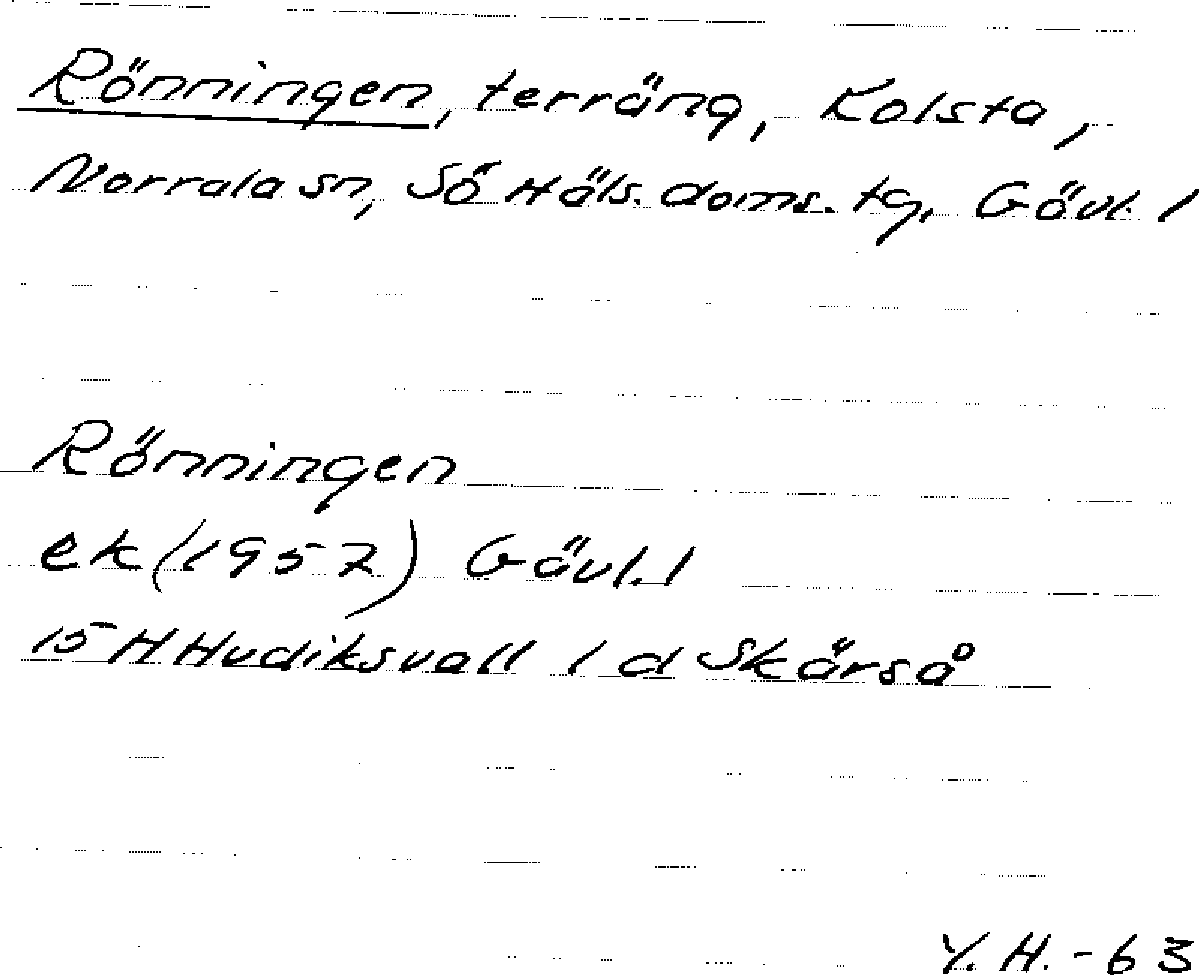 Rönningen, terräng, Kolsta,
Norrala sn, Sö Häls. doms. tg, Gävl. l
Rönningen
ek (1957) Gävl. l
15 H Hudiksvall 1 d Skärså
Y. H. - 63